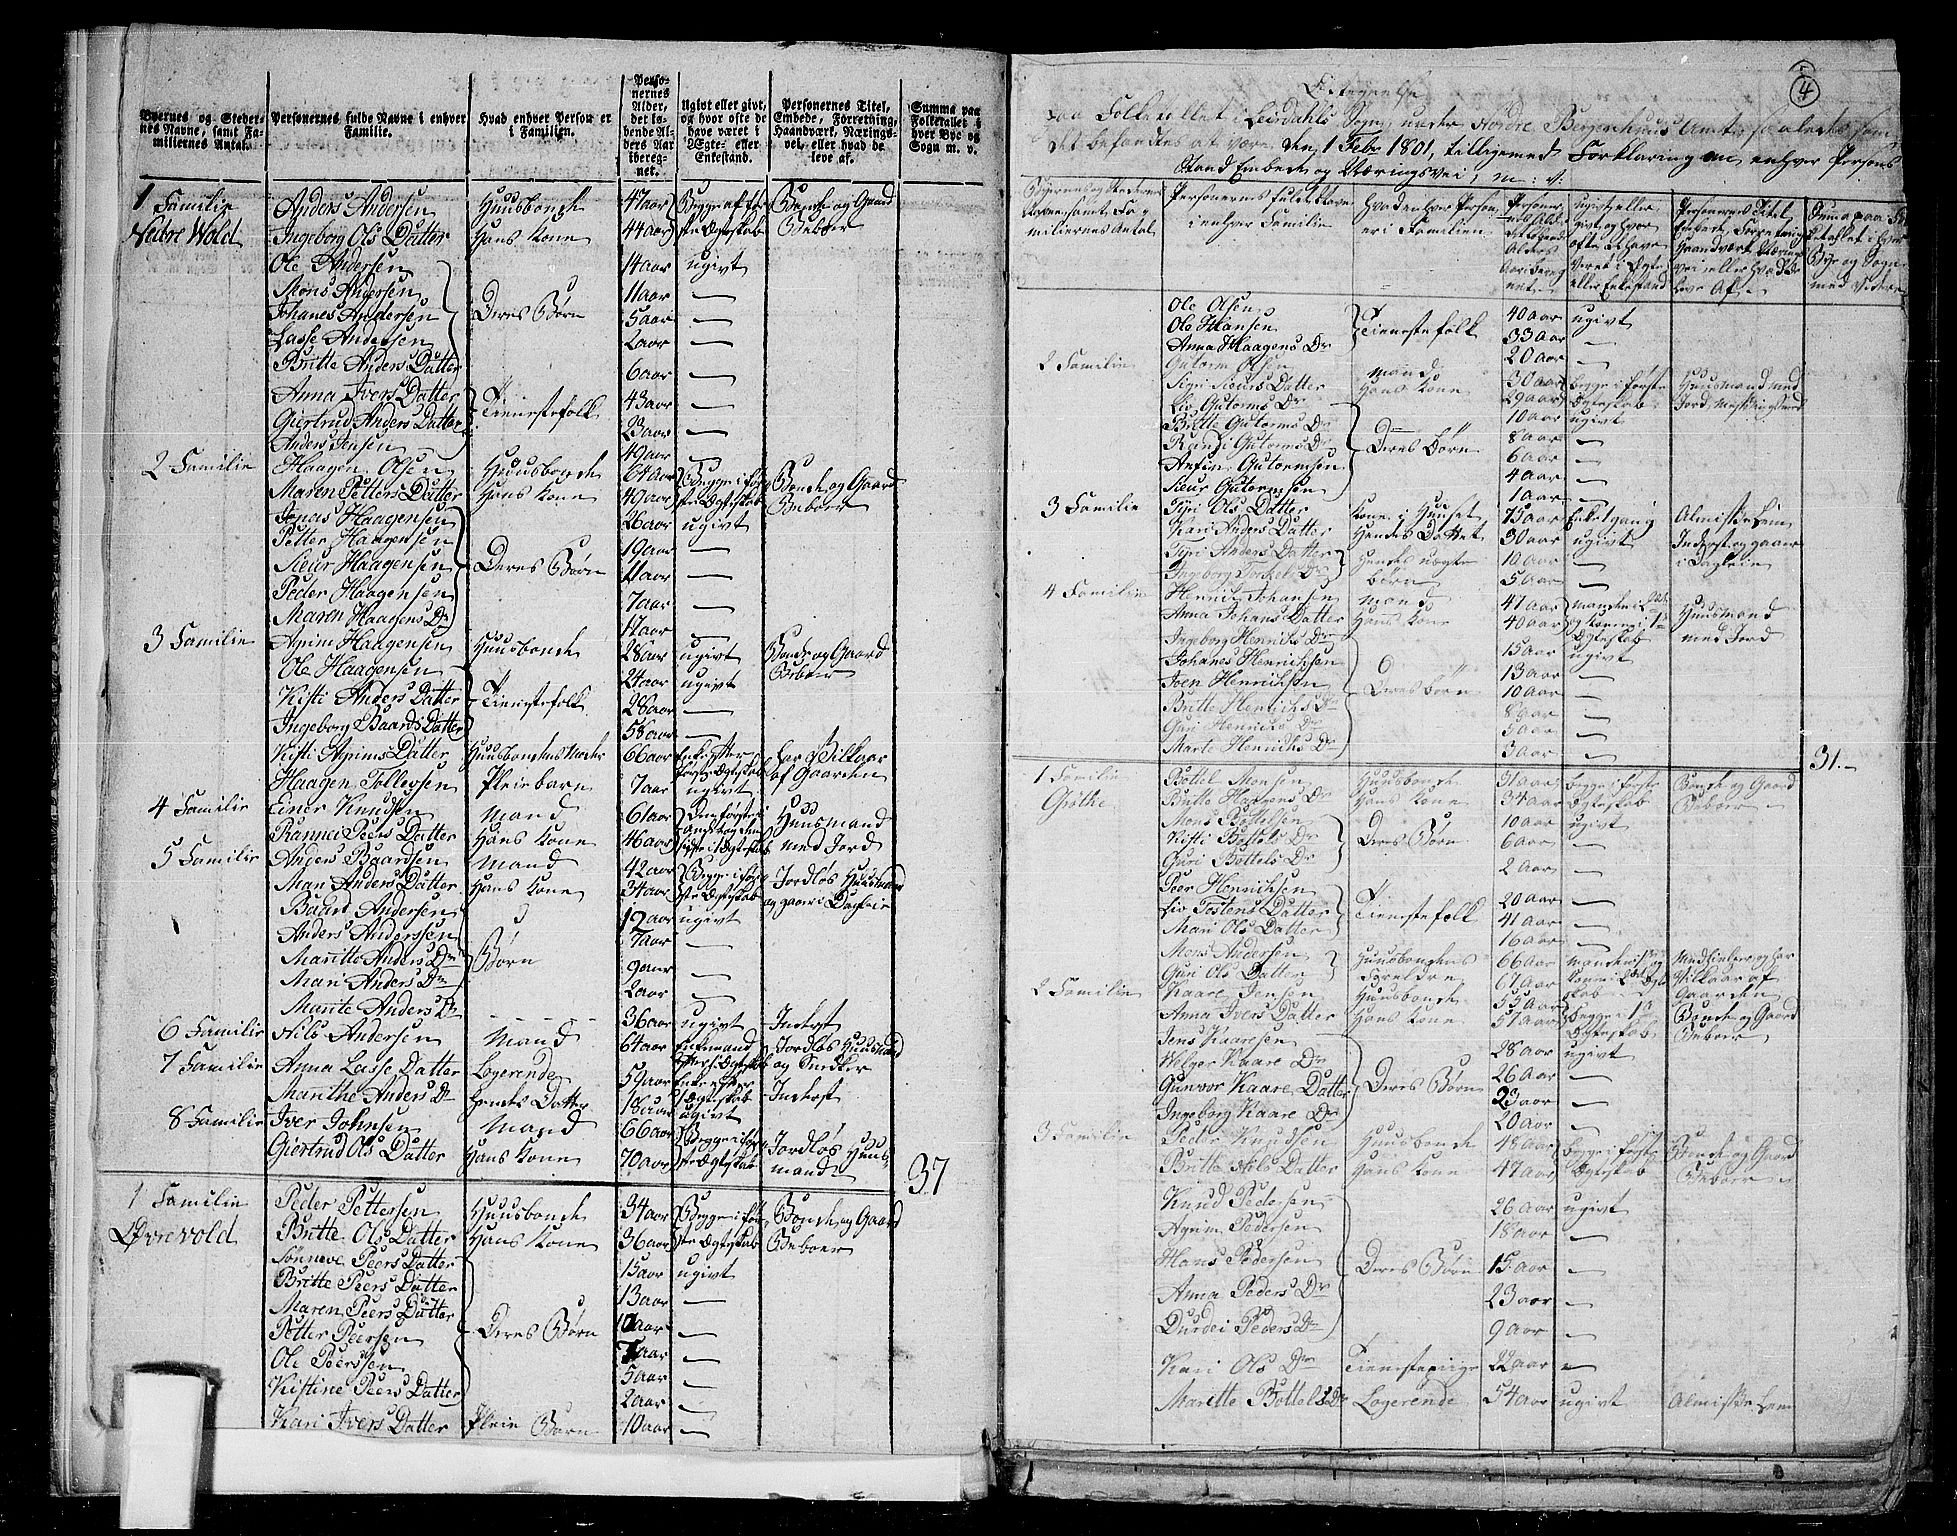 Byernes og Steder-
nes Navne, samt Fa-
miliernes Antal.
Personernes fulde Navne i enhver
Familie.
Hvad enhver Person er
i Familien.
Perso-
nernes
Alder,
det lø-
bende Al-
ders Aar
ibereg-
net.
Ugivt eller givt,
og hvor ofte de
have været i
Ægte- eller
Enkestand.
Personernes Titel,
Embede, Forretning,
Haandværk, Nærings-
vei, eller hvad de
leve af.
Summa paa
Folketallet i
hver Bye og
Sogn m. v.
1 Familie Anders Andersen Huusbonde 47 aar Begge af før- Bonde og Gaard
Nedre Wold Ingeborg Ols Datter Hans Kone 44 aar ste Ægteskab Beboer
Ole Andersen 14 aar ugivt
Mons Andersen 11 aar —
Johanes Andersen Deres Børn 5 aar —
Lasse Andersen 2 aar —
Britte Anders Datter 6 aar —
Anna Ivers Datter 43 aar —
Giertrud Anders Datter Tienestefolk 23 aar —
Anders Jensen 49 aar —
2 Familie Haagen Olsen Huusbonde 64 aar Begge i før- Bonde og Gaard
Maren Petters Datter Hans Kone 40 aar ste Ægteskab Beboer
Jonas Haagensen 26 aar ugivt
Petter Haagensen 19 aar —
Sieur Haagensen Deres Børn 11 aar —
Peder Haagensen 7 aar —
Maren Haagens Dr 17 aar —
3 Familie Agrim Haagensen Huusbonde 28 aar ugivt Bonde og Gaard
Ole Haagensen 24 aar ugivt Beboer
Kisti Anders Datter Tienestefolk 28 aar —
Ingeborg Baards Datter 58 aar —
Kisti Agrims Datter Huusbondens Moder 66 aar Enke efter har Vilkaar
første Ægteskab af Gaarden
Haagen Tollevsen Pleiebarn 7 aar ugivt
4 Familie Einer Knudsen Mand 61 aar Huusmand
Rannei Peers Datter Hans Kone 46 aar med Jord
5 Familie Anders Baardsen Mand 42 aar Begge i før- Jordløs Huusmand
Mari Anders Datter Hans Kone 34 aar ste Ægteskab og gaar i Dagleie
Baard Andersen 12 aar ugivt
Anders Anderssen 7 aar —
Maritte Anders Dr Børn 9 aar —
Mari Anders Dr 2 aar —
Marite Anders Dr - - - - - 36 aar ugivt Inderst
6 Familie Nils Andersen Mand 64 aar Enkemand Jordløs Huusmand
og Snedker
7 Familie Anna Lasse Datter Logerende 59 aar Enke efter Inderst
Marithe Anders Dr hendes Datter 18 aar ugivt
8 Familie Iver Johnsen Mand 66 aar Begge i før- Jordløs Huus-
Giertrud Ols Datter Hans Kone 70 aar ste Ægteskab mand 37
1 Familie Peder Pettersen Huusbonde 34 aar Begge i før- Bonde og Gaard
Øvre vold Britte Ols Datter Hans Kone 36 aar ste Ægteskab Beboer
Sønneve Peers Datter 15 aar ugivt
Britte Peers Datter 13 aar —
Maren Peers Datter 10 aar —
Petter Peersen Deres Børn 7 aar —
Ole Peerssen 5 aar —
Kistine Peers Datter 2 aar —
Kari Ivers Datter Pleie Børn 10 aar —
4
paa Folketallet i Leirdahls Sogn, under Nordre Bergenhuus Amt, saaledes som
det befandtes at være den 1 Febr 1801, tilligemed Forklaring om enhver Persons
Stand Embede og Næringsvei, m: v:
Byernes og Stedernes
Navne samt Fa-
miliernes Antal
Personernes fulde Navne
i enhver Familie
Hvad enhver Person
er i Familien
Personer-
nes Alder
det løbende
Alders
Aar bereg-
net
ugivt eller
givt, og hvor
ofte de have
veret i Egte
eller Enkestand
Personernes Titel
Embede, Forretning
Haandværk Nærings-
vei eller hvad de
leve af
Suma paa Fol-
ketallet i hver
Bye og Sogn
med videre
Ole Olsen 40 aar ugivt
Ole Hansen Tienestefolk 33 aar —
Anna Haagens Dr 20 aar —
2 Familie Gutorm Olsen mand 30 aar begge i første Huusmand med
Sigri Sieurs Datter Hans Kone 29 aar Egteskab
Liv Gutorms Dr 10 aar ugivt
Britte Gutorms Dr 8 aar —
Ranzi Gutorms Dr Deres Børn 6 aar —
Arfin Gutormsen 4 aar —
Sieur Gutormsen 1 aar —
3 Familie Syri Ols Datter Kone i Huuset 75 aar Enke 1 gang Almisse Lem
Kari Anders Datter Hendes Datter 30 aar ugivt Inderst og gaaer
Syri Anders Datter hendes uægte 10 aar — i Dagleie
Ingeborg Torkels Dr børn 5 aar —
4 Familie Henrik Johansen mand 47 aar Huusmand
Anna Johans Datter Hans Kone 40 aar Egteskab med Jord
Ingeborg Henriks Dr 15 aar ugivt
Johanes Henriksen 13 aar —
Joen Henriksen Deres børn 10 aar —
Britte Henrichs Dr 8 aar —
Guri Henrichs Dr 5 aar —
Marte Henrichs Dr 3 aar — 31.—
1 Familie Bottil Monsen Huusbonde 31 aar begge i første Bonde og Gaard
Grøthe Britte Haagens Dr Hans Kone 34 aar Egteskab Beboer
Mons Bottelsen 10 aar ugivt
Kisti Bottels Dr Deres Børn 6 aar —
Guri Bottels Dr 2 aar —
Peer Henriksen 20 aar —
Liv Tostens Datter Tienestefolk 41 aar —
Mari Ols Datter 16 aar —
Mons Andersen Huusbondens 66 aar
Guri Ols Datter Foreldre 67 aar Vilkaar af
Gaarden
2 Familie Kaare Jensen Huusbonde 55 aar begge i 1te Bonde og Gaard
Anna Ivers Datter Hans Kone 57 aar Egteskab Beboer
Jens Kaaresen 28 aar ugivt
Wolger Kaare Dr 26 aar —
Gunvor Kaare Datter Deres Børn 23 aar —
Ingeborg Kaare Dr 20 aar —
3 Familie Peder Knudsen Huusbonde 48 aar begge i første Bonde og Gaard
Britte Nils Datter Hans Kone 47 aar Egteskab Beboer
Knud Pedersen 26 aar ugivt
Agrim Pedersen 18 aar —
Hans Pedersen Deres Børn 15 aar —
Anna Peders Dr 23 aar —
Durdei Peders Dr 9 aar —
Kari Ols Dr Tienestepiige 22 aar —
Maritte Bottels Dr Logerende 54 aar ugivt Almisse Lem